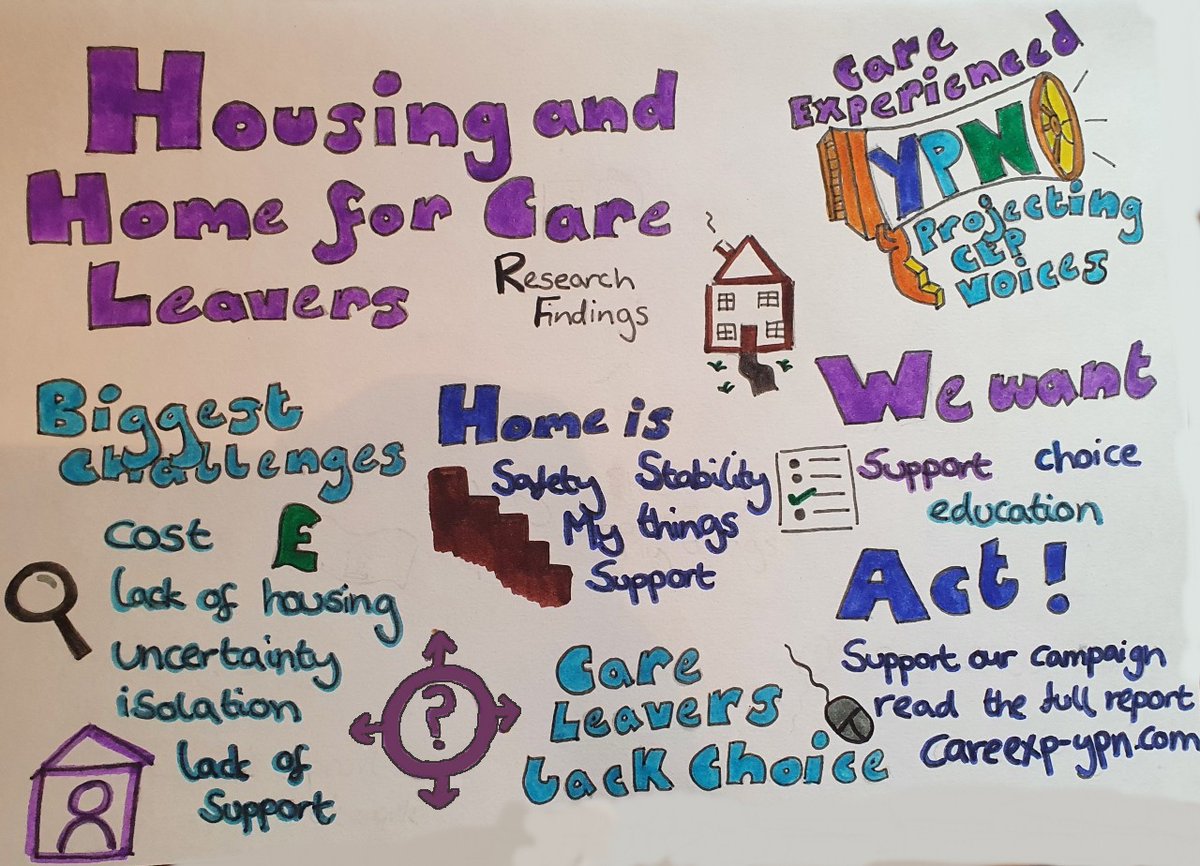 Housing and
Home for Care
Leavers
Research
Findings
Care
Experienced
YPN
Projecting
CEP
Voices
Biggest
Challenges
cost £
lack of housing
uncertainty
isolation
lack of
support
Home is
Safety Stability
My things
Support
?
Care
Leavers
Lack Choice
We want
Support choice
education
Act!
Support our campaign
read the full report
careexp-ypn.com